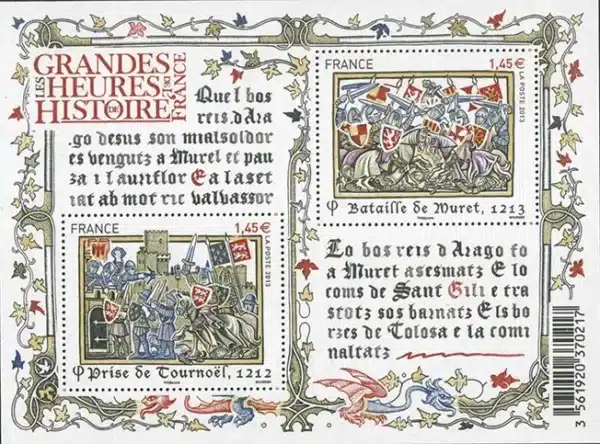 LES GRANDES
HEURES DE
L'HISTOIRE DE FRANCE
Quel bos
reis d'Ara
.go desus son mialsoldor
es vengutz a Murel et pau
za i lauriflor E a la set
iat ab mot ric valvassor
FRANCE 1,45€
LA POSTE 2013
φ Bataille de Muret, 1213
FRANCE 1,45€
LA POSTE 2013
φ Prise de Tournoël, 1212
Lo bos reis d Arago fo
a Muret asesmatz E lo
coms de Sant Gili e tra
stotz sos barnatz Els bor
zes de Tolosa e la comi
naltatz
3 561920 370217